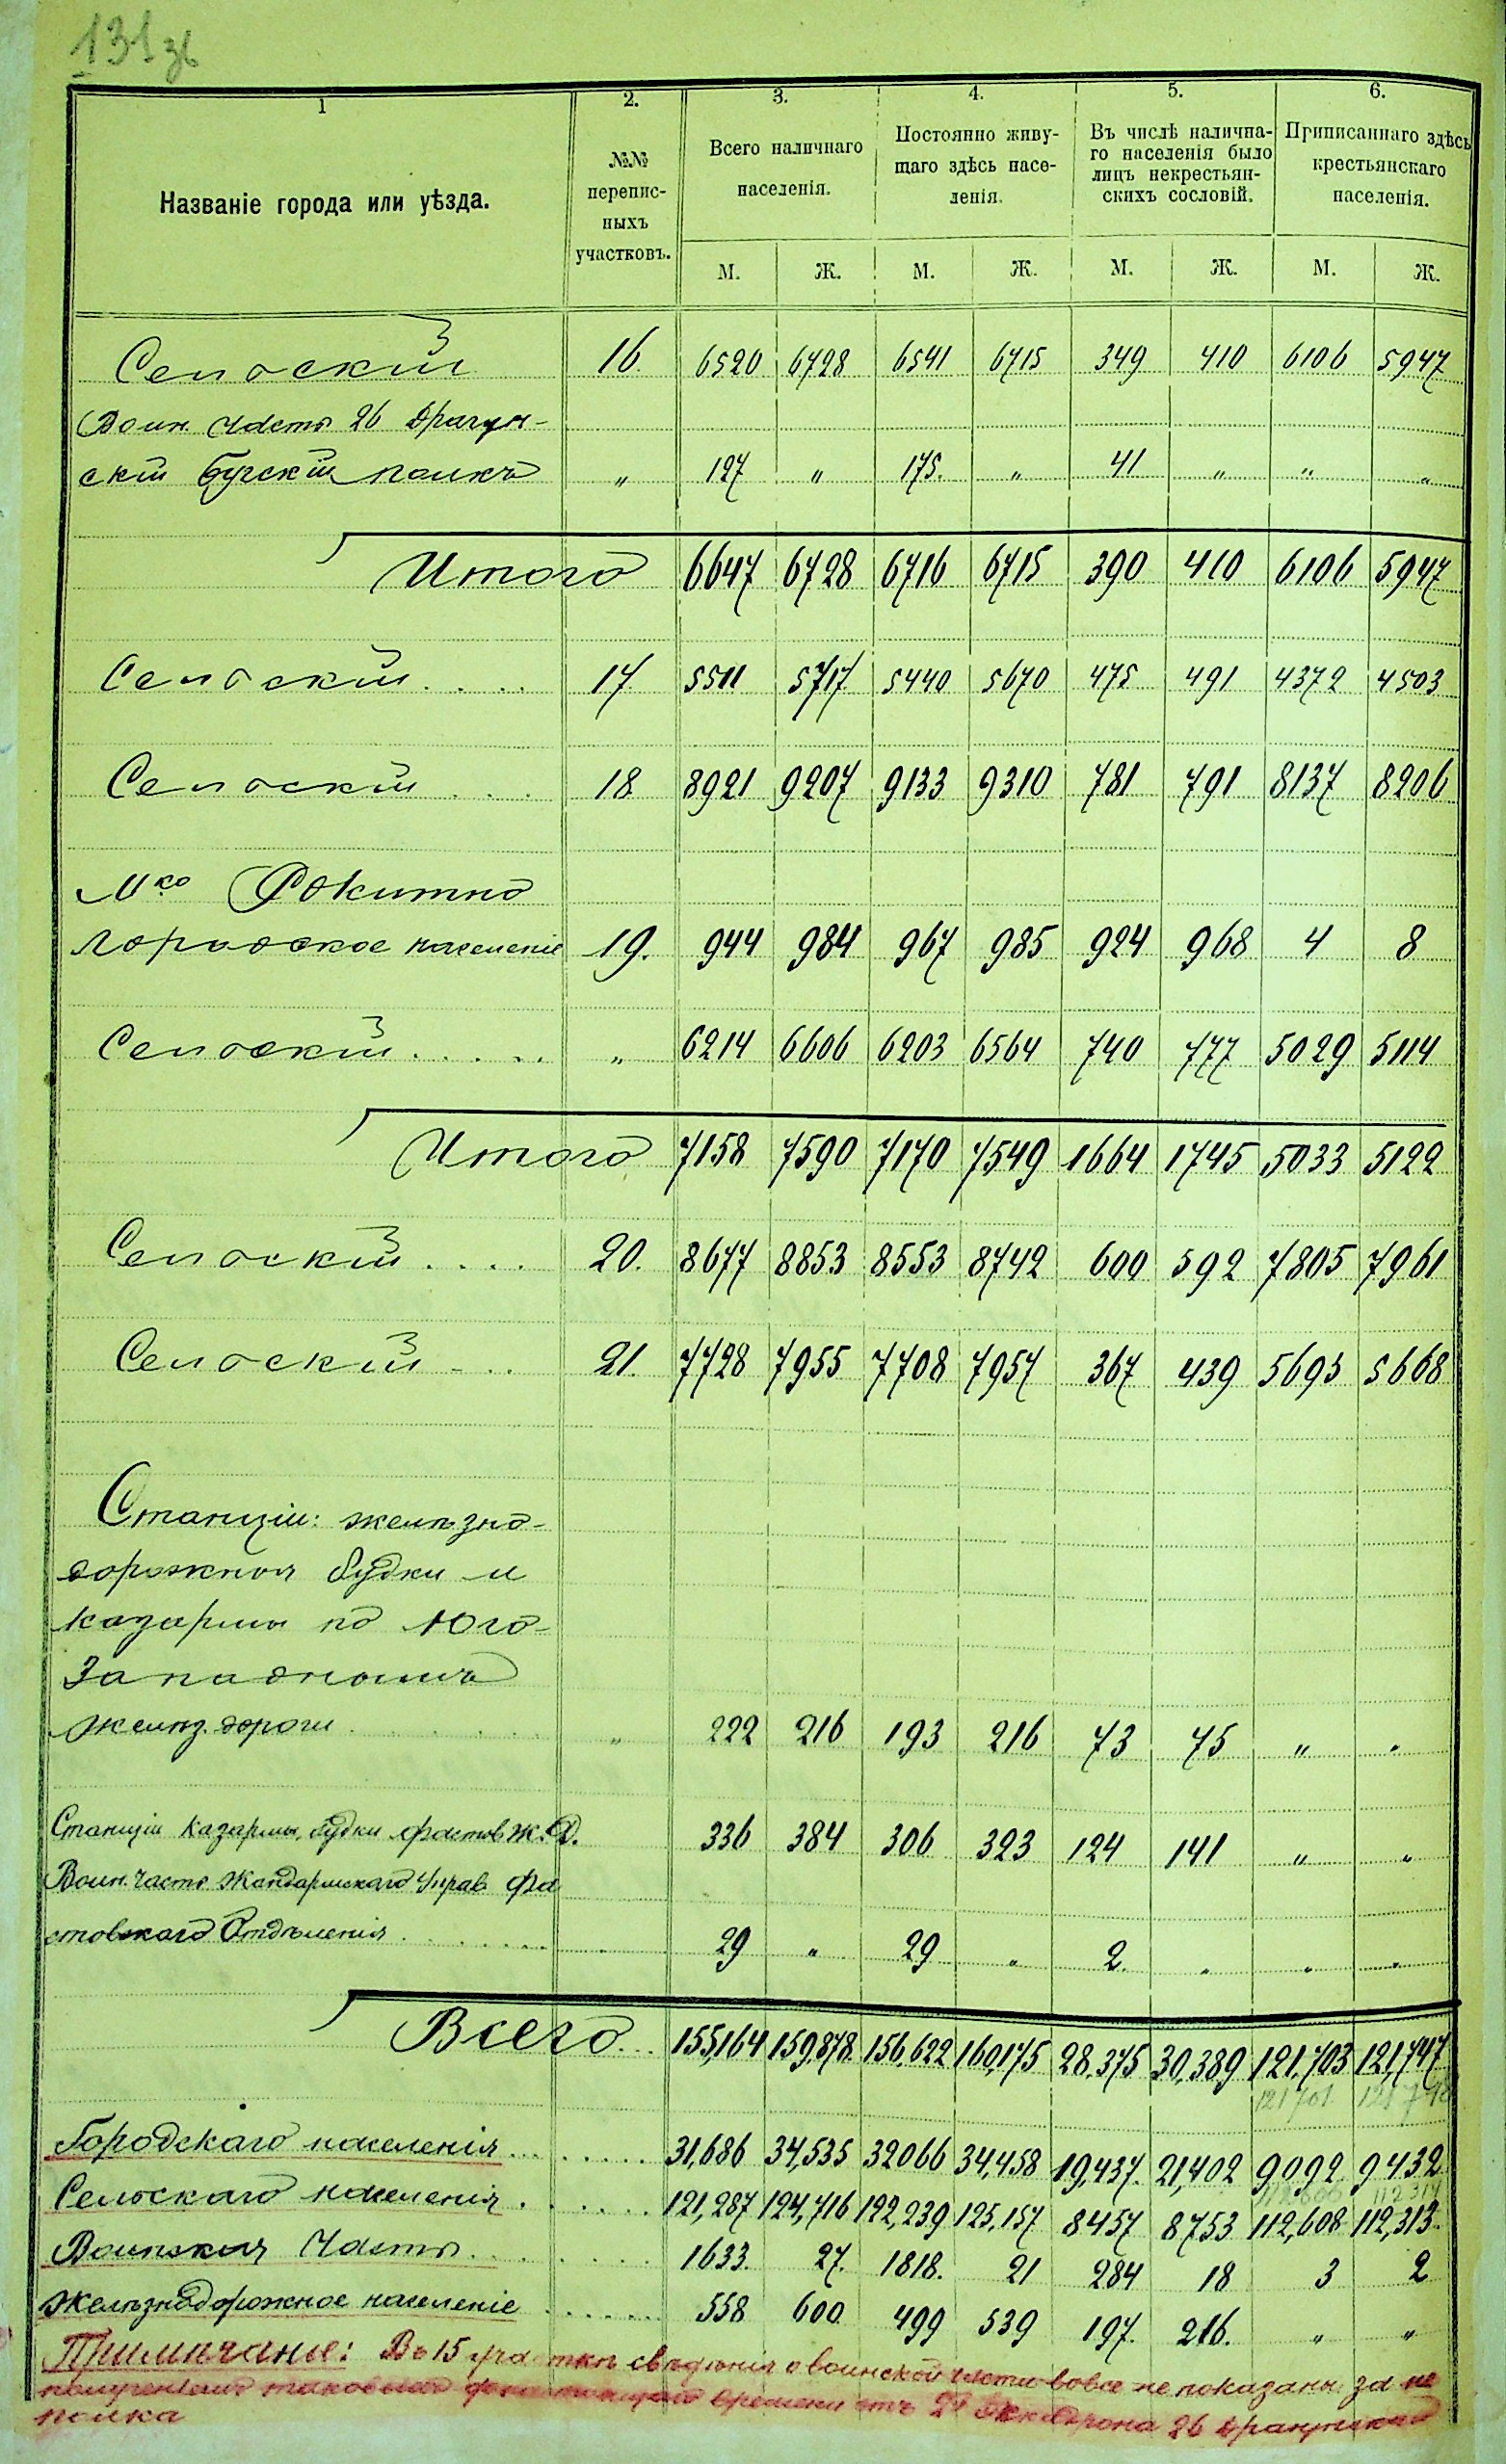 131 зв
1 2. 3. 4. 5. 6.
Названіе города или уѣзда.
№№ перепис-
ныхъ
участковъ.
Всего наличнаго
населенія.
Постоянно живу-
щаго здѣсь насе-
ленія.
Въ числѣ налична-
го населенія было
лицъ некрестьян-
скихъ сословій.
Приписаннаго здѣсь
крестьянскаго
населенія.
М. Ж. М. Ж. М. Ж. М. Ж.
Сельскій 16. 6520 6728 6541 6715 349 410 6106 5947
Воин. часть 26 драгун-
скій Бугскій полкъ „ 127 „ 175. „ 41 „ „ „
Итого 6647 6728 6716 6715 390 410 6106 5947
Сельскій.... 17. 5511 5717. 5440 5670 475 491 4372 4503
Сельскій.... 18 8921 9207 9133 9310 781 791 8137 8206
М.ко Рокитно
городское населеніе 19. 944 984 967 985 924 968 4 8
Сельскій..... „ 6214 6606 6203 6564 740 777 5029 5114
Итого 7158 7590 7170 7549 1664 1745 5033 5122
Сельскій.... 20. 8677 8853 8553 8742 600 592 7805 7961
Сельскій.... 21. 7728 7955 7708 7957 367 439 5693 5668
Станціи: желѣзно-
дорожныя будки и
казармы по Юго-
Западнымъ
желѣз. дороги „ 222 216 193 216 73 75 „ „
Станціи казармы, будки Фастов. Ж. Д. 336 384 306 323 124 141 „ „
Воин. часть Жандармскаго Управ. Фа
стовскаго Отдѣленія 29 „ 29 „ 2. „ „ „
Всего... 155,164 159,878. 156,622 160,175 28,375 30,389 121,703 121,747
121701 121748
Городскаго населенія 31,686 34,535 32066 34,458 19,437. 21,402 9092 9432
Сельскаго населенія 121,287 124,716 122,239 125,157 8457 8753 112,608 112,313.
Воинская Часть 1633. 27. 1818. 21 284 18 3 2
Желѣзнодорожное населеніе 558 600 499 539 197. 216. „ „
Примѣчаніе: Въ 15 участкѣ свѣдѣнія о воинской части вовсе не показаны за не
полученіемъ таковыхъ до настоящаго времени отъ 2го эскадрона 26 драгунскаго
полка